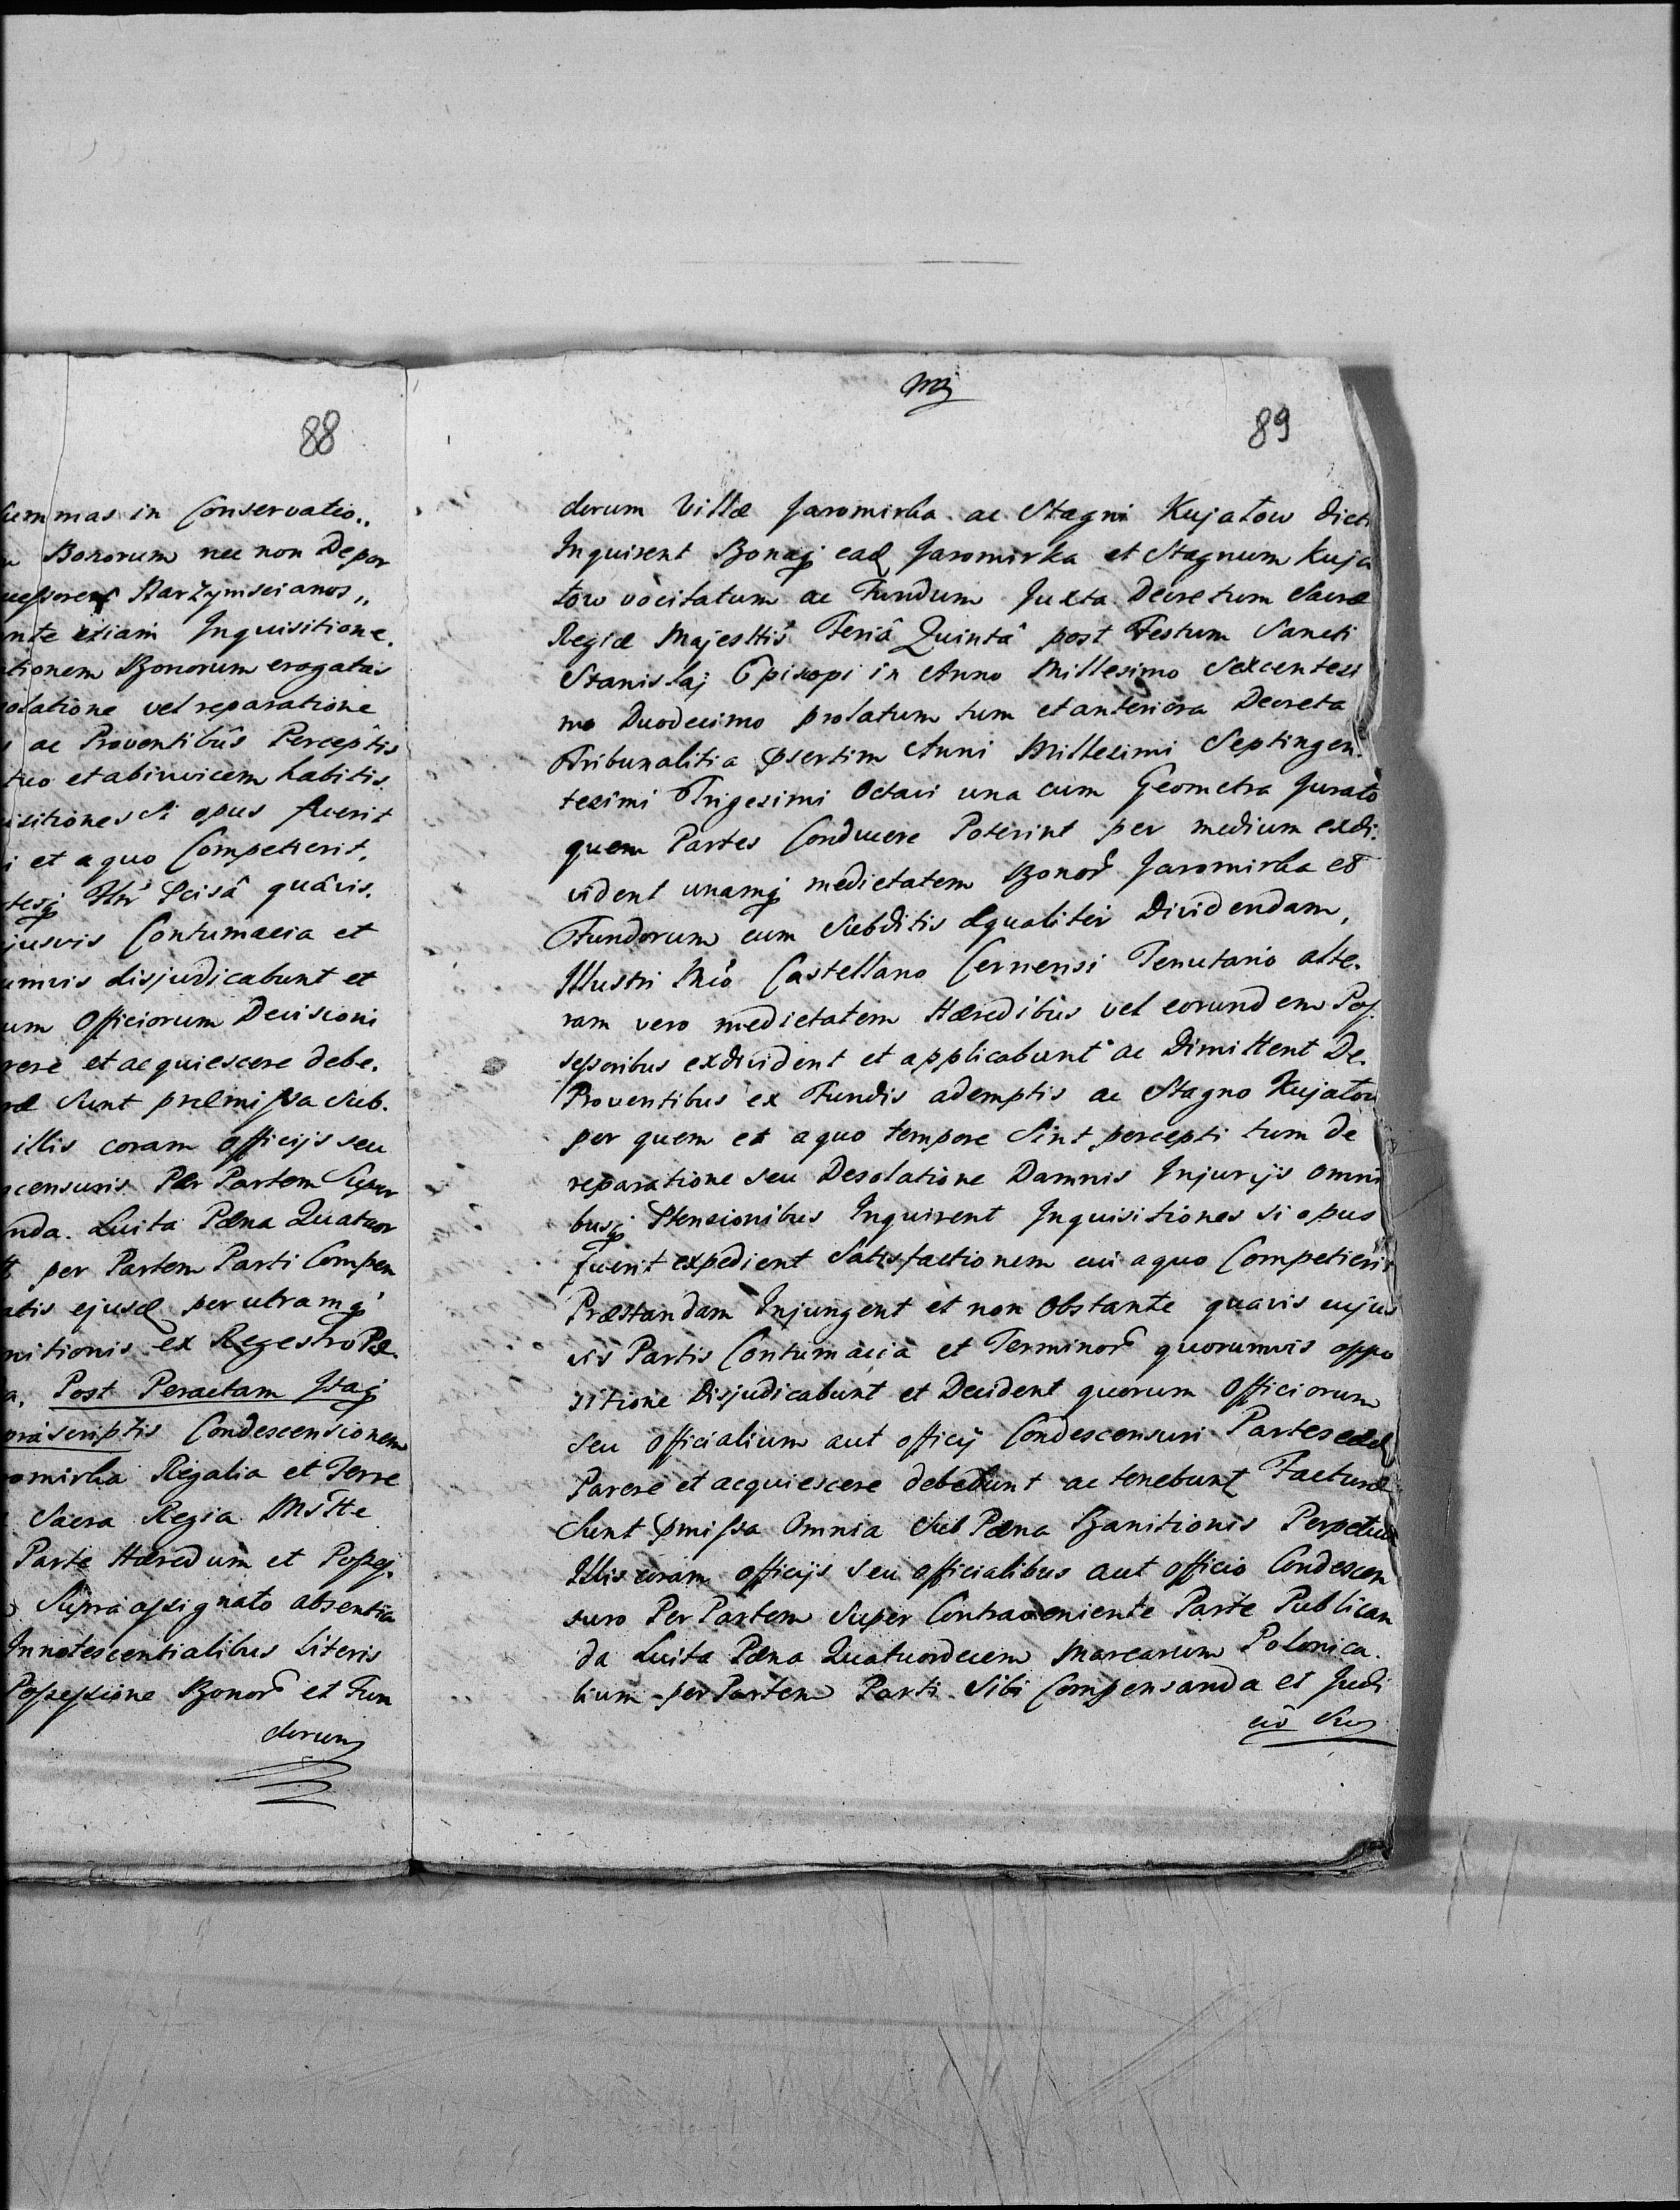 88
summas in Conservatio„
Bonorum nec non Depor
uessores Starzymscianos„
nte etiam Inquisitione.
tionem Bonorum erogatas
olatione vel reparatione
ac Proventibûs Perceptis
tuo et abinvicem habitis.
isitiones Si opus fuerit
i et a quo Competierit.
Scisâ quâvis.
jusvis Contumacia et
umvis disjudicabunt et
um Officiorum Decisioni
rere et acquiescere debe.
ræ Sunt præmissa Sub.
illis coram officijs seu
censuris Per Partem Super
nda. Luita Pæna Quatuor
per Partem Parti Compen
atis ejusd per utramq
nitionis ex Regestro Pæ.
a. Post Peractam Itaq
præscriptis Condescensionem
omirka Regalia et Terre
Sacra Regia Mstte
Parte Hæredum et Posses.
Supra assignato absentia
Innotescentialibus Literis
Possessione Bonor et Fun
dorum
89
dorum Villæ Jaromirka ac Stagni Kujatow dicti
Inquirent Bonaq ead Jaromirka et Stagnum Kuja
tow vocitatum ac Fundum Juxta Decretum Sacræ
Regiæ Majesttis Feriâ Quintâ post Festum Sancti
Stanislaj Episcopi in Anno Millesimo Sexcentesi
mo Duodecimo prolatum tum et anteriora Decreta
Tribunalitia psertim Anni Millesimi Septingen.
tesimi Trigesimi Octavi una cum Geometra Jurato
quem Partes Conducere Poterint per medium exdi.
vident unamq medietatem Bonor Jaromirka et
Fundorum cum Subditis æqualiter Dividendam,
Illustri Mcô Castellano Cernensi Tenutario alte.
ram vero medietatem Hæredibus vel eorundem Pos.
sessoribus exdivident et applicabunt ac Dimittent De.
Proventibus ex Fundis ademptis ac Stagno Kujatow
per quem et a quo tempore Sint percepti tum de
reparatione seu Desolatione Damnis Injurijs omni
busq Ptensionibus Inquirent Inquisitiones si opus
fuerit expedient Satisfactionem cui a quo Competierit
Præstandam Injungent et non Obstante quavis cujus
vis Partis Contumacia et Terminor quorumvis oppo
sitione Disjudicabunt et Decident quorum Officiorum
seu officialium aut officij Condescensuri Partes eæd
Parere et acquiescere debebunt ac tenebunt Facturæ
Sunt pmissa Omnia Sub Pæna Banitionis Perpetuæ
Illis coram officijs seu officialibus aut officio Condescen
suro Per Partem Super Contraveniente Parte Publican
da Luita Pæna Quatuordecem Marcarum Polonica.
lium per Partem Parti Sibi Compensanda et Judi
cio Suo